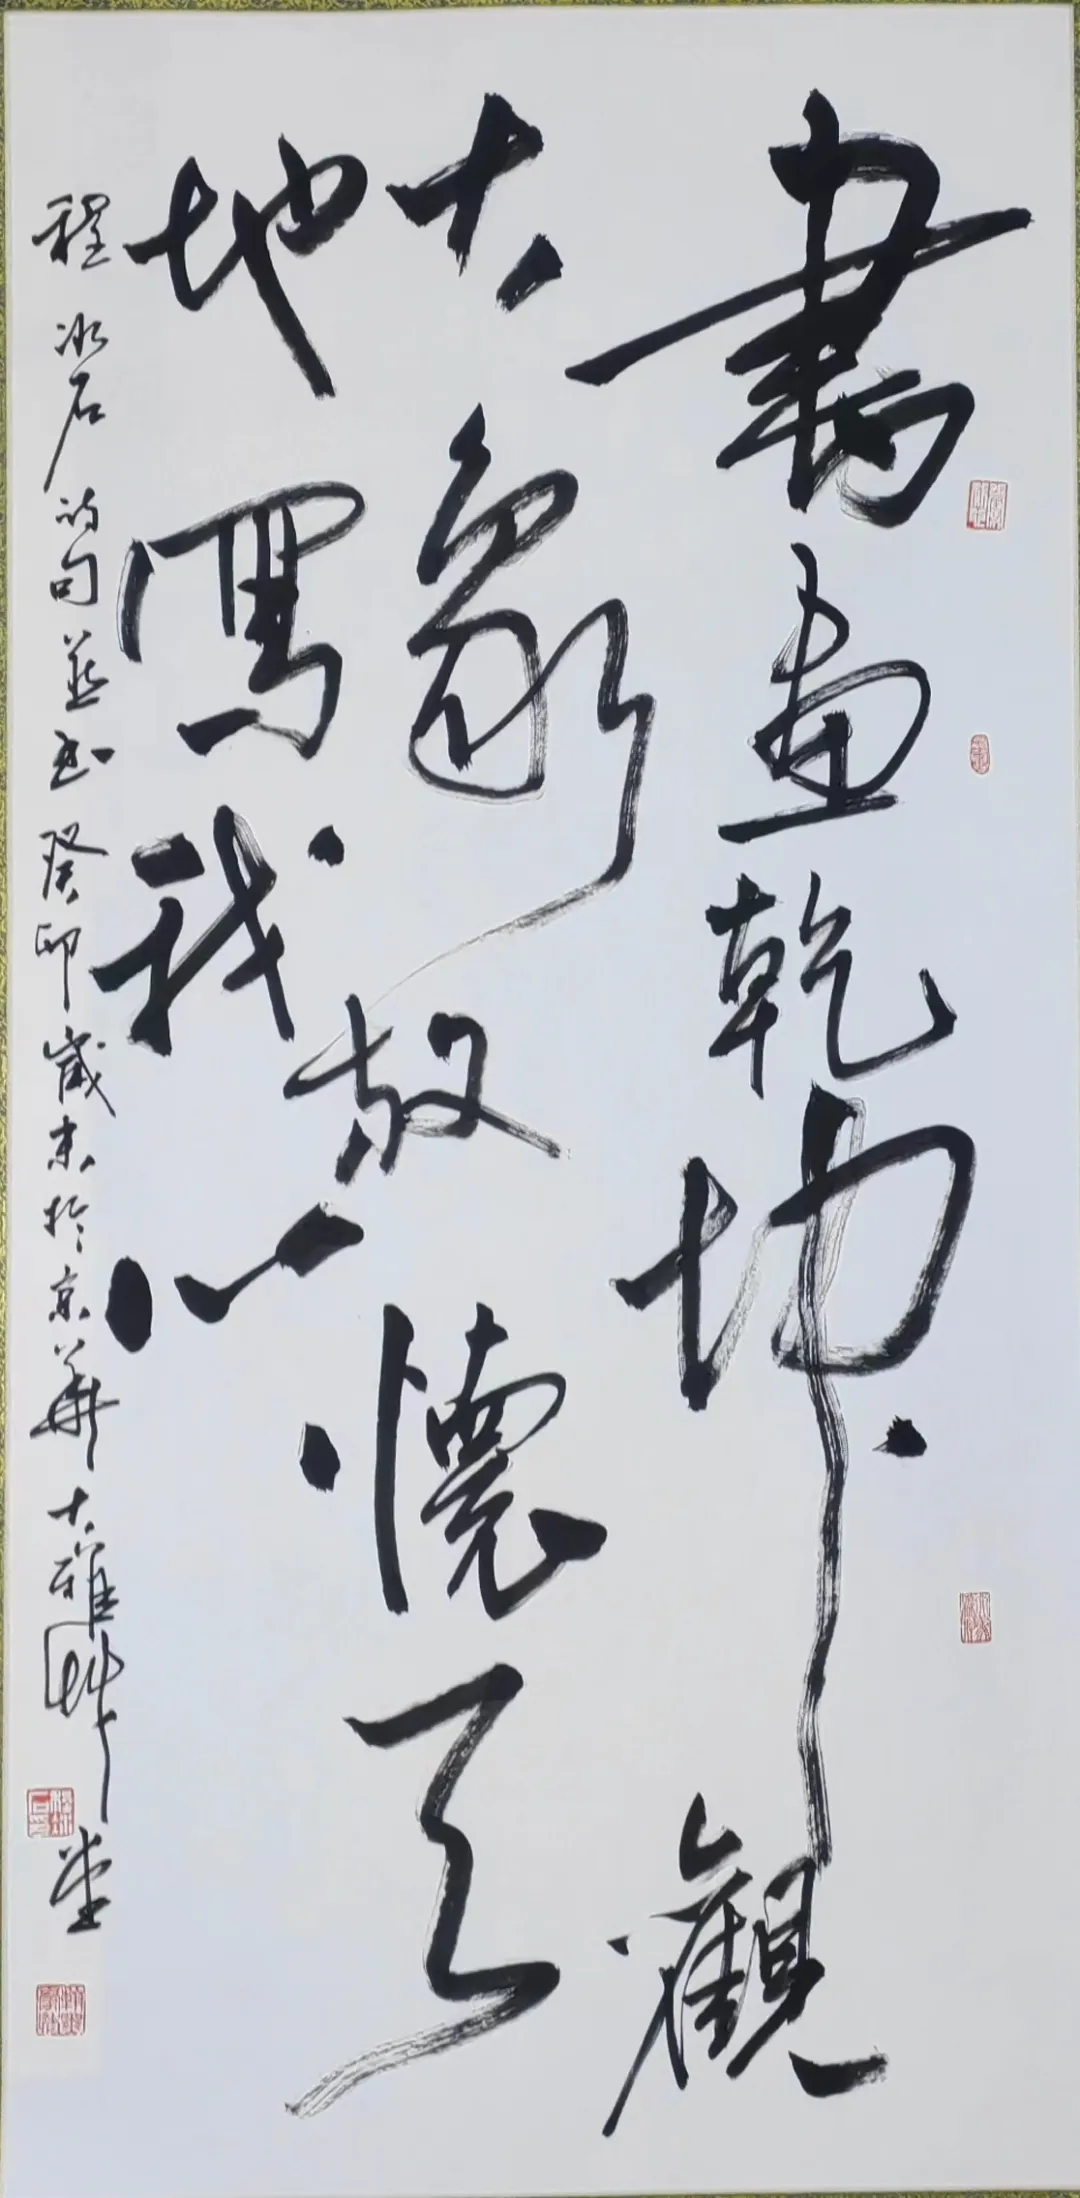 書畫乾坤觀
大象敞懷天
地寫我心
程冰石詩句並書癸卯歲末於京華大雅草堂